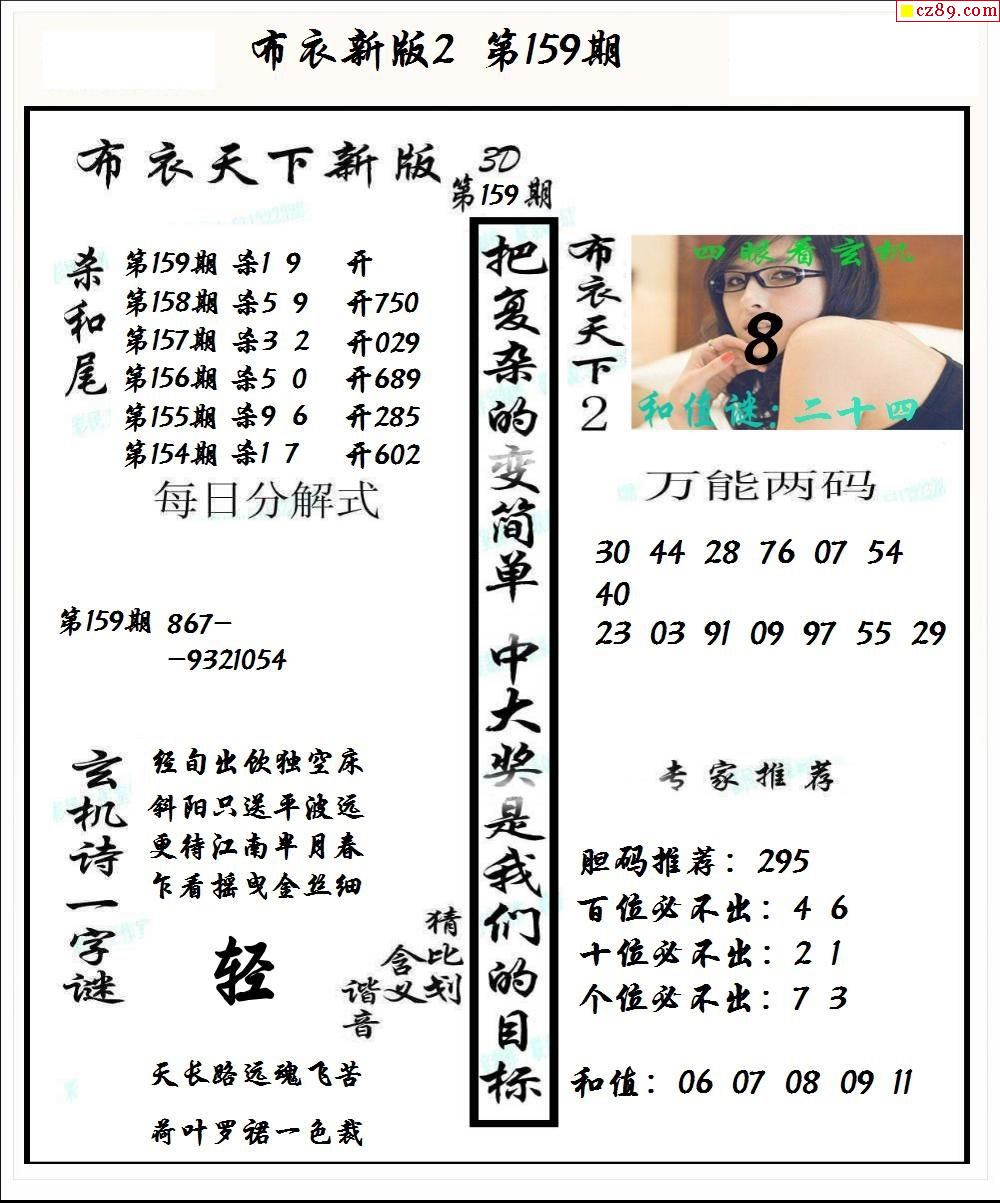 cz89.com
布衣新版2 第159期
布衣天下新版 3D
第159期
杀和尾
第159期 杀1 9 开
第158期 杀5 9 开750
第157期 杀3 2 开029
第156期 杀5 0 开689
第155期 杀9 6 开285
第154期 杀1 7 开602
每日分解式
第159期 867-
-9321054
玄机诗一字谜
经旬出饮独空床
斜阳只送平波远
更待江南半月春
乍看摇曳金丝细
轻
猜比划
含义
谐音
天长路远魂飞苦
荷叶罗裙一色裁
把复杂的变简单 中大奖是我们的目标
布衣天下2
四眼看玄机
8
和值谜:二十四
万能两码
30 44 28 76 07 54
40
23 03 91 09 97 55 29
专家推荐
胆码推荐：295
百位必不出：4 6
十位必不出：2 1
个位必不出：7 3
和值：06 07 08 09 11